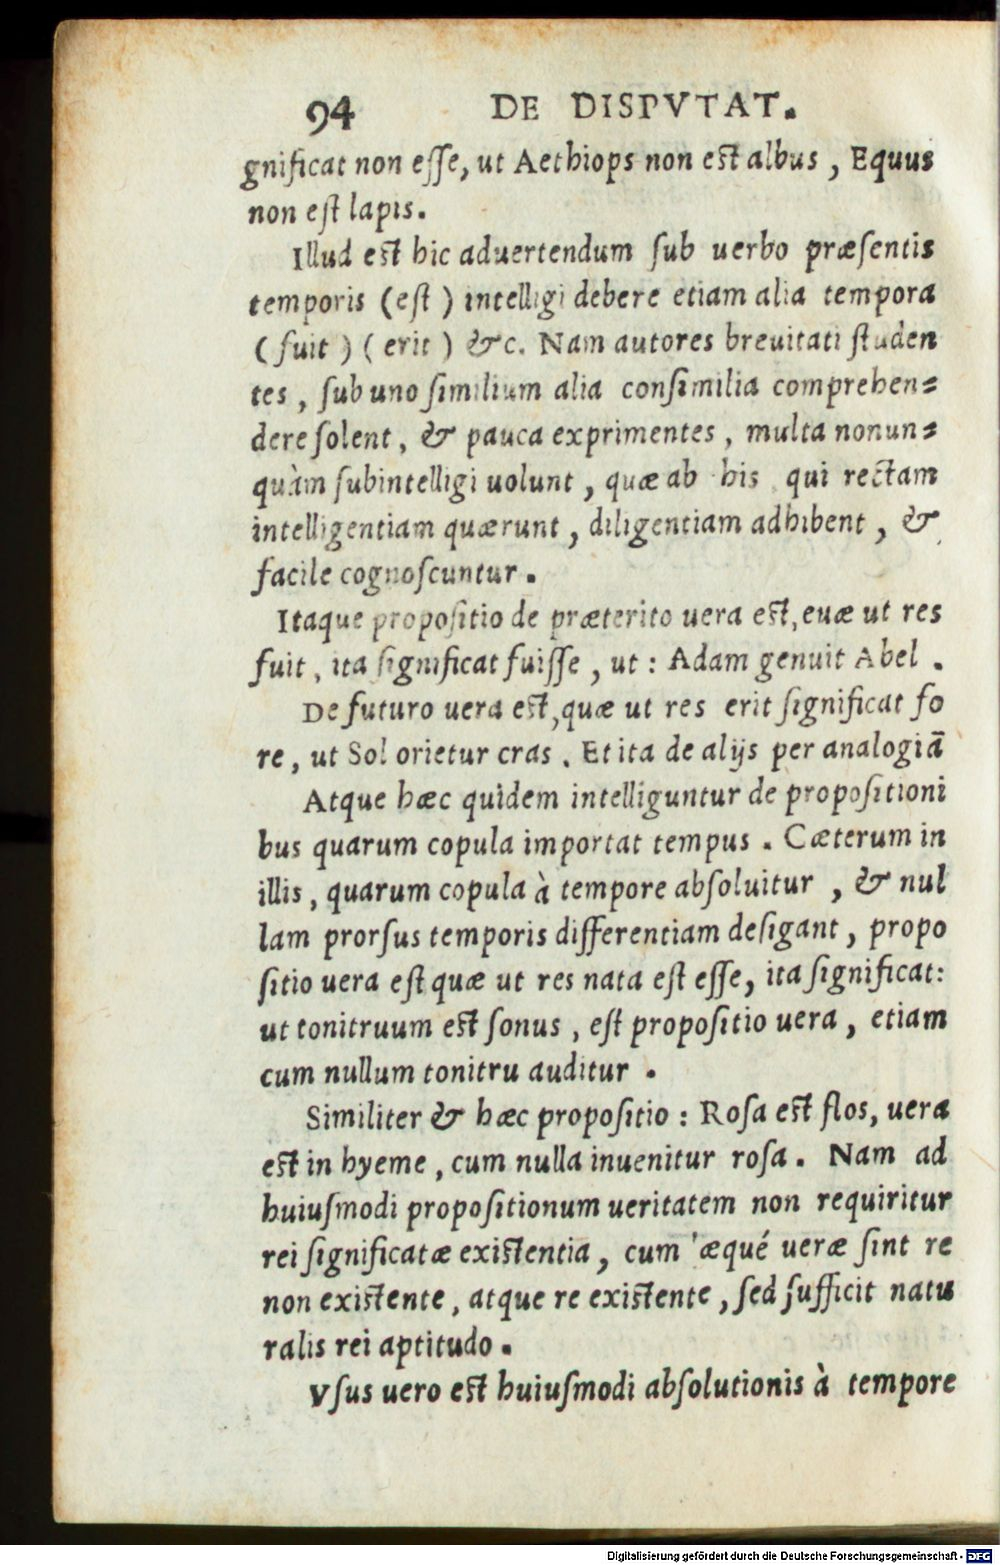 94 DE DISPVTAT.
gnificat non esſe, ut Aethiops non est albus, Equus
non eſt lapis.
Illud est hic aduertendum ſub uerbo præſentis
temporis (eſt) intelligi debere etiam alia tempora
(fuit) (erit) &c. Nam autores breuitati ſtuden
tes, ſub uno ſimilium alia conſimilia comprehen=
dere ſolent, & pauca exprimentes, multa nonun=
quàm ſubintelligi uolunt, quæ ab his qui rectam
intelligentiam quærunt, diligentiam adhibent, &
facile cognoſcuntur.
Itaque propoſitio de præterito uera est, euæ ut res
fuit, ita ſignificat fuiſſe, ut: Adam genuit Abel.
De futuro uera est, quæ ut res erit ſignificat fo
re, ut Sol orietur cras. Et ita de alijs per analogiā
Atque hæc quidem intelliguntur de propoſitioni
bus quarum copula importat tempus. Cæterum in
illis, quarum copula à tempore abſoluitur, & nul
lam prorſus temporis differentiam deſigant, propo
ſitio uera eſt quæ ut res nata eſt eſſe, ita ſignificat:
ut tonitruum est ſonus, eſt propoſitio uera, etiam
cum nullum tonitru auditur.
Similiter & hæc propoſitio: Roſa est flos, uera
est in hyeme, cum nulla inuenitur roſa. Nam ad
huiuſmodi propoſitionum ueritatem non requiritur
rei ſignificatæ existentia, cum æqué ueræ ſint re
non existente, atque re existente, ſed ſufficit natu
ralis rei aptitudo.
Vſus uero est huiuſmodi abſolutionis à tempore
Digitalisierung gefördert durch die Deutsche Forschungsgemeinschaft - DFG